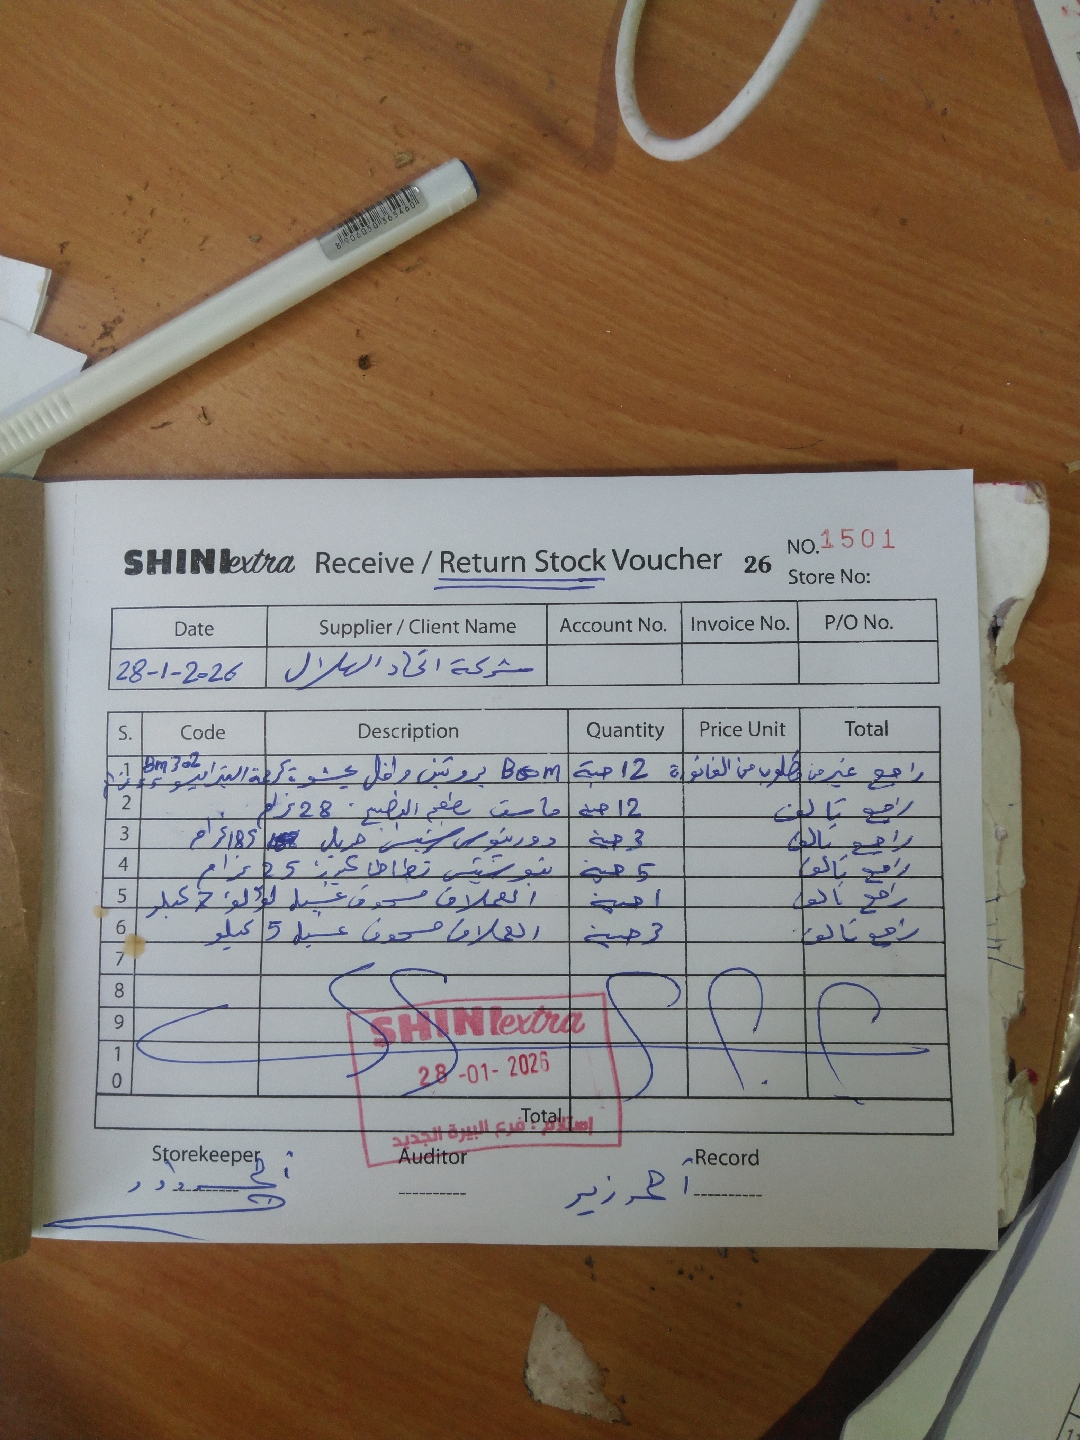 8906050363460
SHINI extra Receive / Return Stock Voucher 26
NO. 1501
Store No:
Date Supplier / Client Name Account No. Invoice No. P/O No.
28-1-2026 شركة اتحاد الهلال
S. Code Description Quantity Price Unit Total
1 Bm302 Boom بروتين وافل محشو بكريمة 12 حبة راجع غير مطلوب من الفاتورة
2 ماست بطعم 28 جرام 12 حبة راجع تالف
3 دوريتوس سويت 185 جرام 3 حبة راجع تالف
4 بطاطا 25 جرام 5 حبة راجع تالف
5 العملاق مسحوق غسيل 2 كيلو 1 حبة راجع تالف
6 العملاق مسحوق غسيل 5 كيلو 3 حبة راجع تالف
7
8
9
10
SHINI extra
28 -01- 2026
إستلام : فرع البيرة الجديد
Total
Storekeeper Auditor Record
أحمد زير